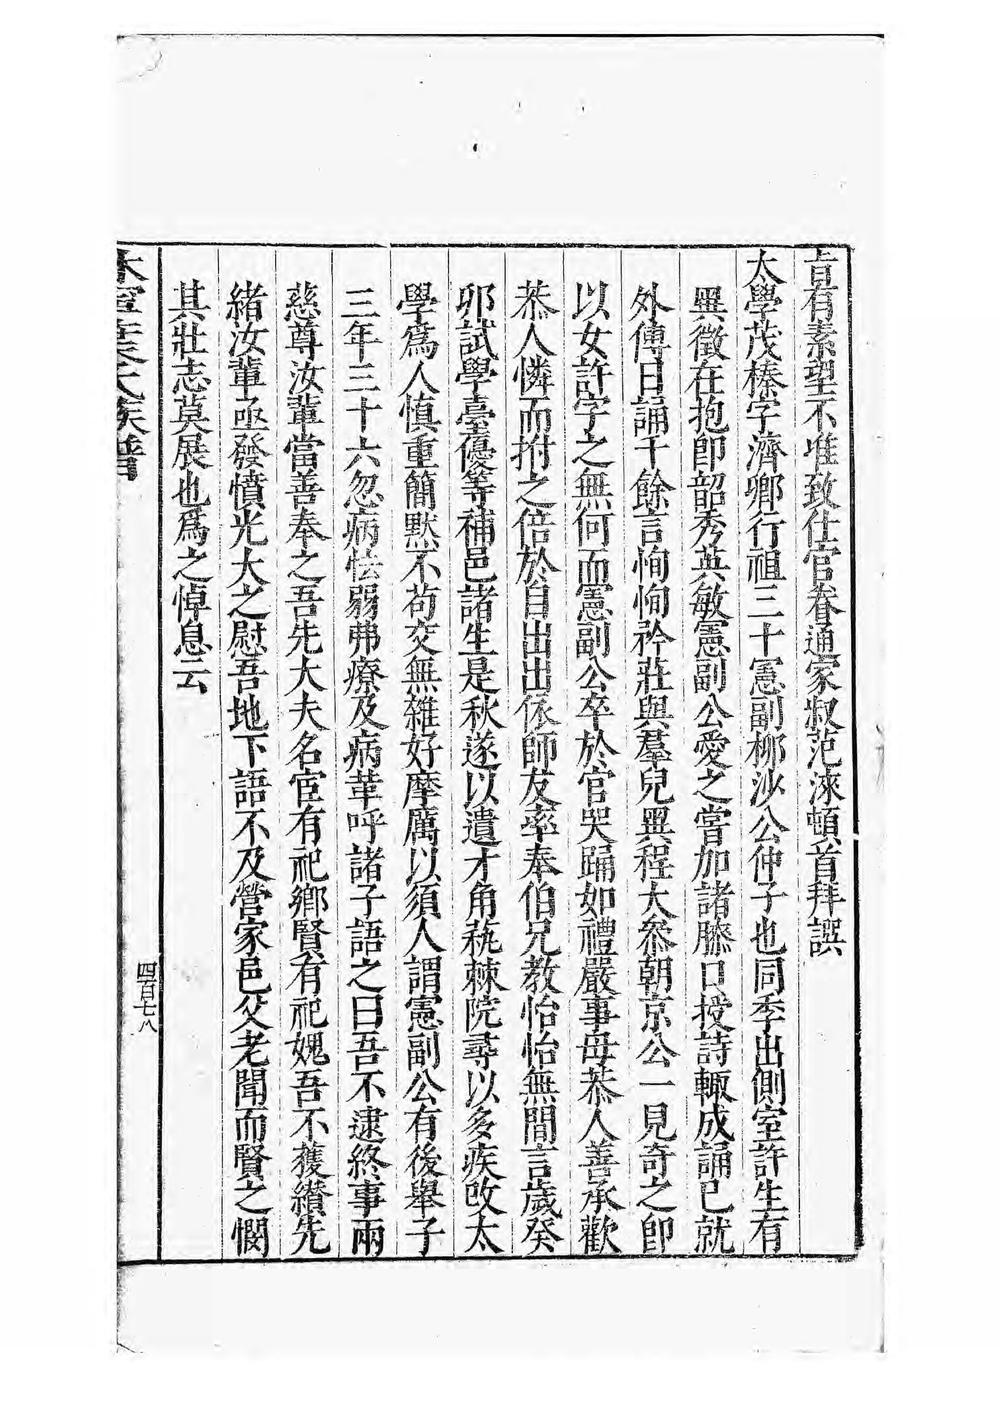 旨有素望不唯致仕官眷通家叔范淶頓首拜譔
太學茂榛字濟鄉行祖三十憲副柳沙公仲子也同季出側室許生有
異徵在抱卽韶秀英敏憲副公愛之嘗加諸膝口授詩輒成誦已就
外傅日誦千餘言恂恂矜莊與羣兒異程大叅朝京公一見奇之卽
以女許字之無何而憲副公卒於官哭踊如禮嚴事母恭人善承歡
恭人憐而拊之倍於自出出依師友率奉伯兄教怡怡無間言歲癸
卯試學臺優等補邑諸生是秋遂以遺才角藝棘院尋以多疾改太
學爲人慎重簡默不苟交無雜好摩厲以須人謂憲副公有後舉子
三年三十六忽病怯弱弗療及病革呼諸子語之曰吾不逮終事兩
慈尊汝輩當善奉之吾先大夫名宦有祀鄉賢有祀媿吾不獲纘先
緒汝輩亟發憤光大之慰吾地下語不及營家邑父老聞而賢之憫
其壯志莫展也爲之悼息云
族譜
四百七八